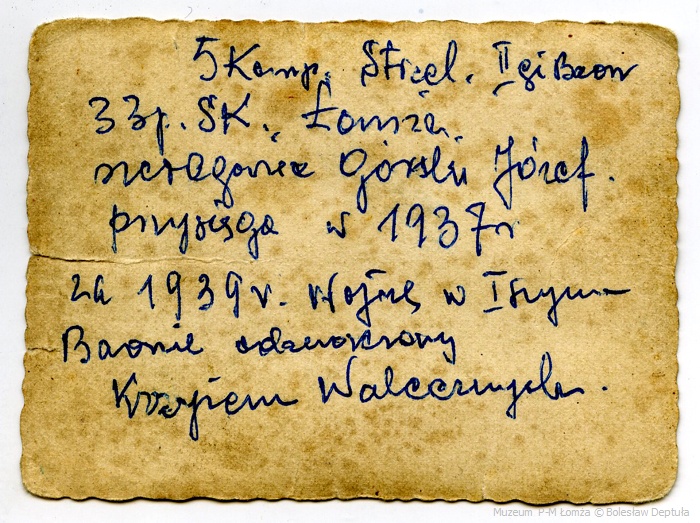 5 Komp. Strzel. II gi Baon
33 p. SK. Łomża.
szeregowiec Górski Józef.
przysięga w 1937 r
za 1939 r. Wojnę w I szym
Baonie odznaczony
Krzyżem Walecznych.
Muzeum P-M Łomża © Bolesław Deptuła